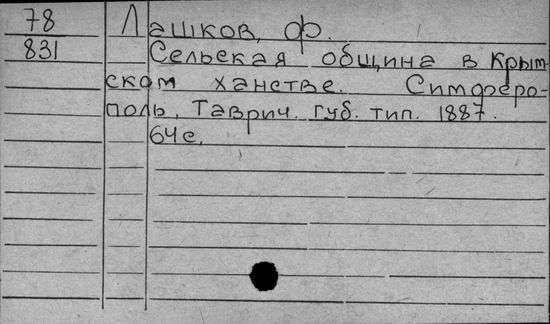 78 Лашков, Ф.
831 Сельская община в Крым-
ском ханстве. Симферо-
поль, Таврич. губ. тип. 1887.
64 с.